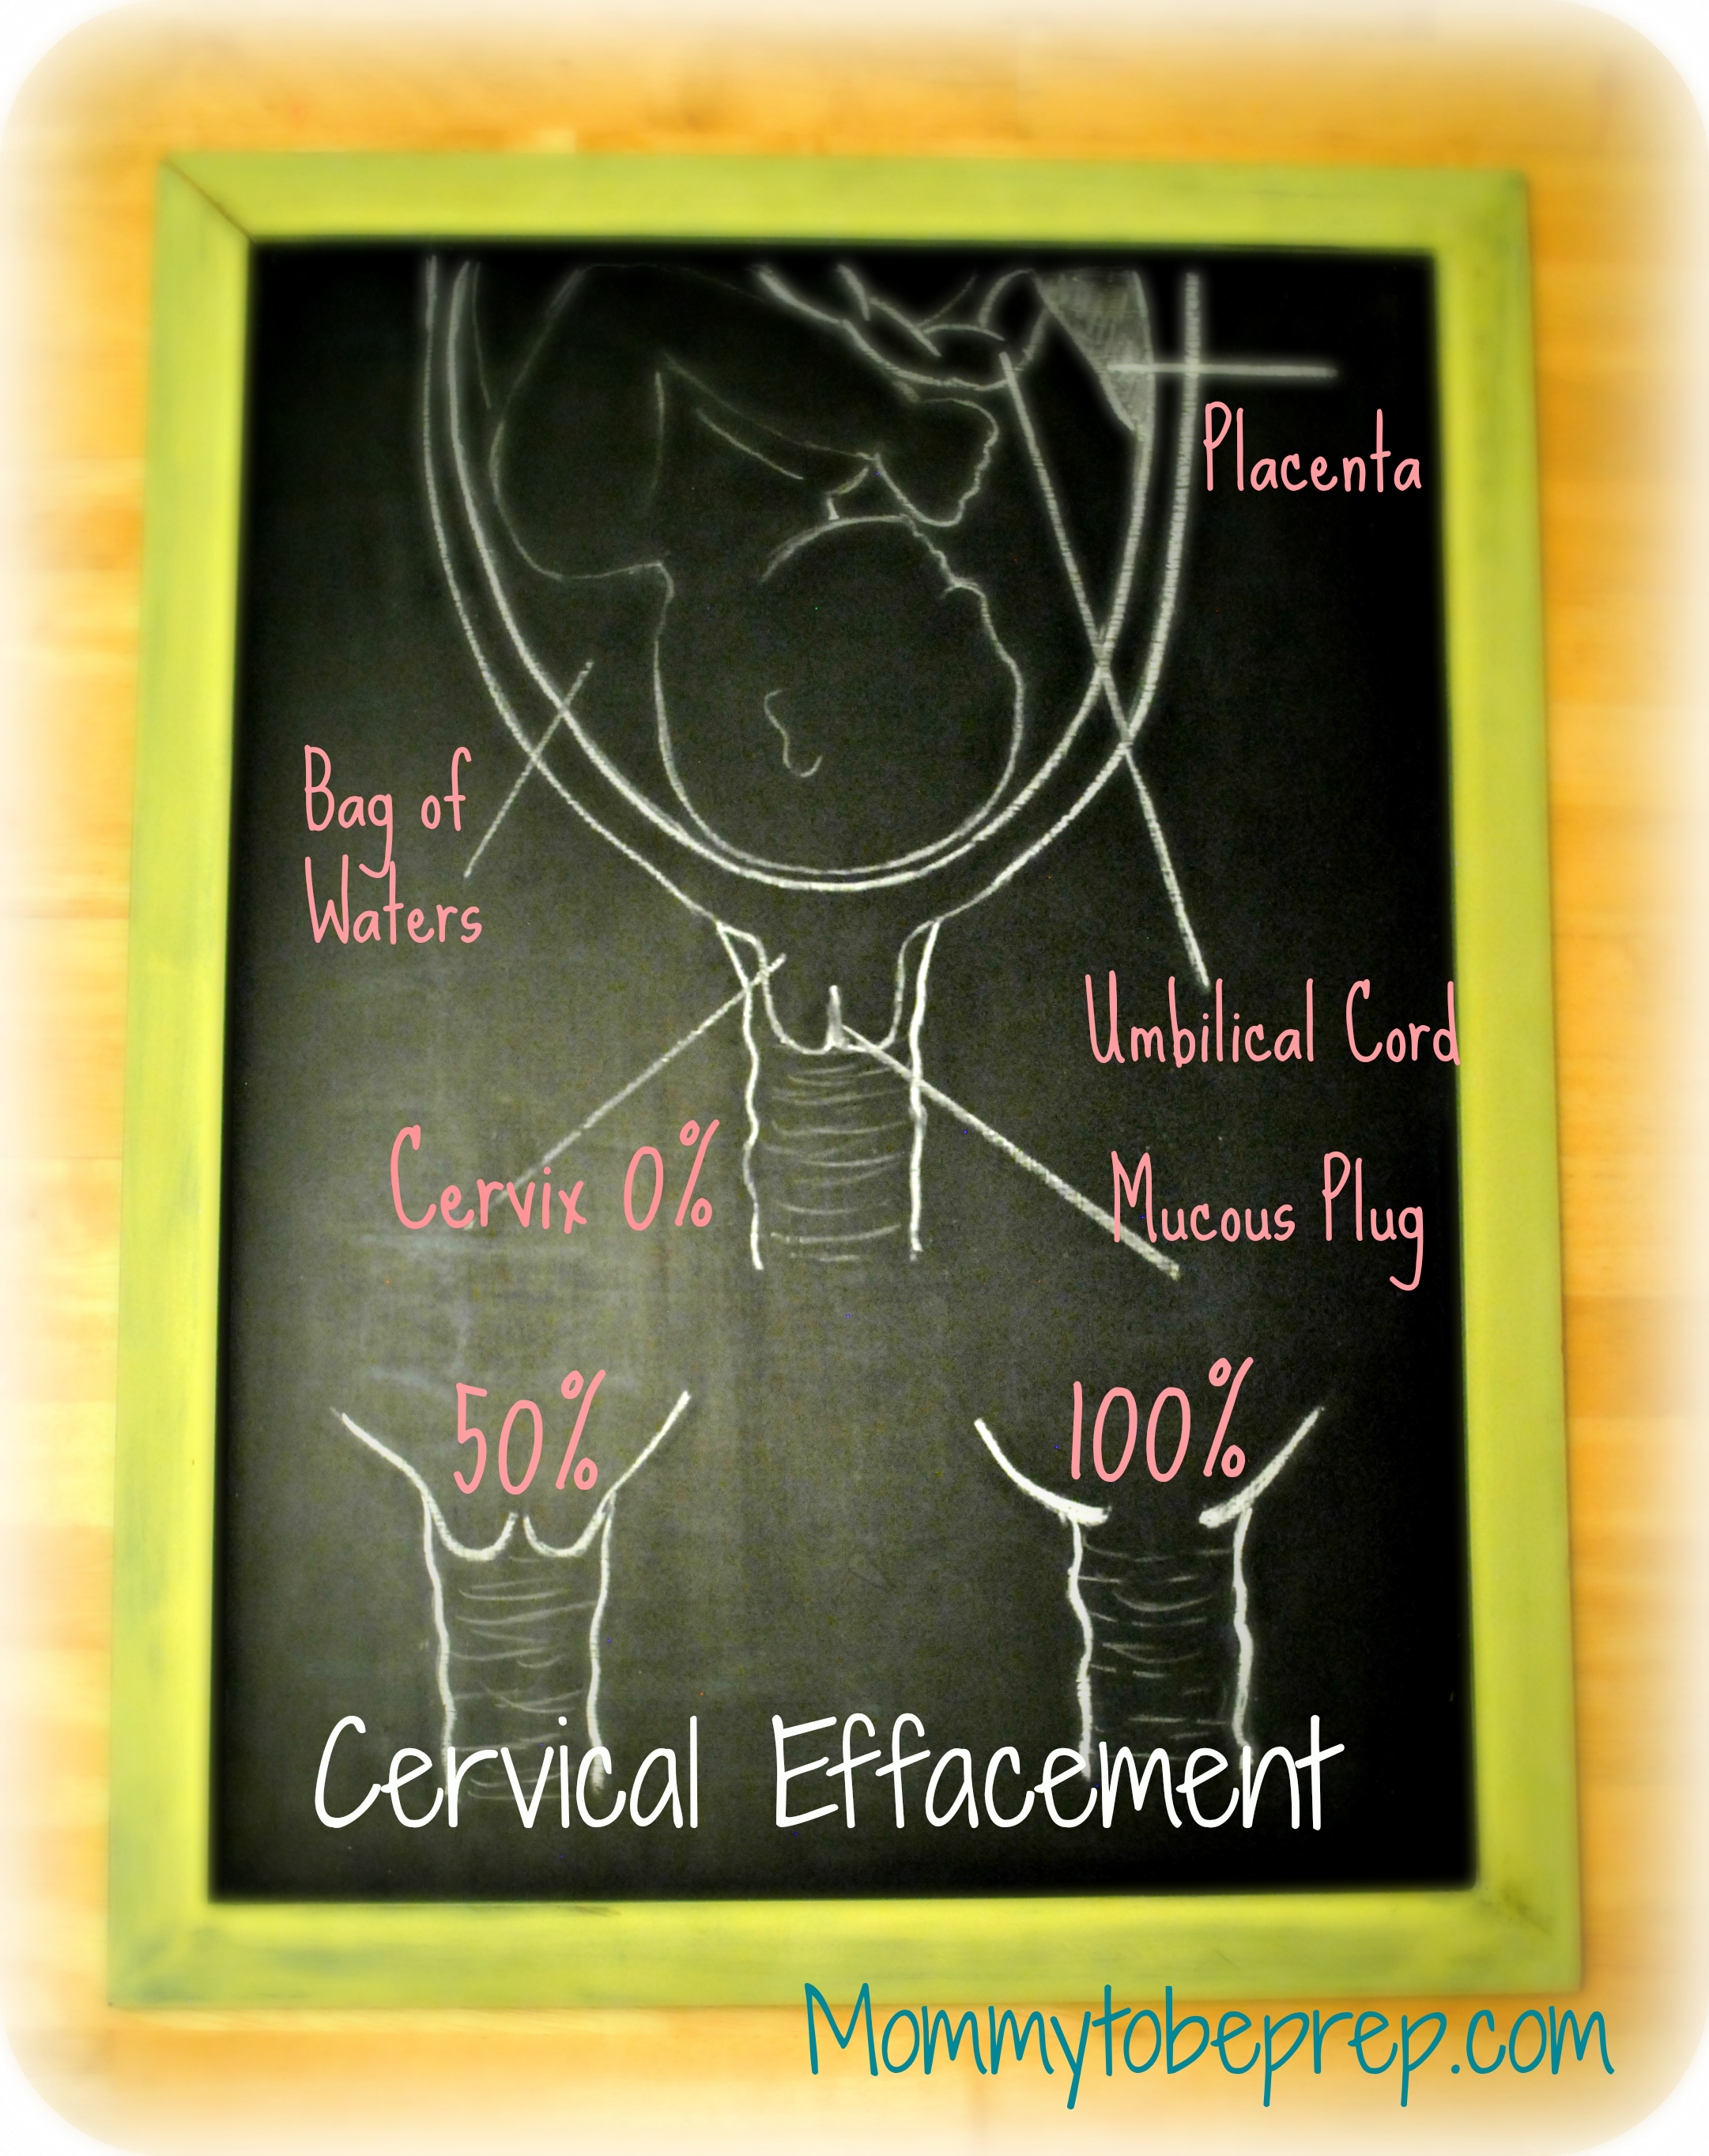 Placenta
Bag of
Waters
Umbilical Cord
Cervix 0%
Mucous Plug
50%
100%
Cervical Effacement
Mommytobeprep.com